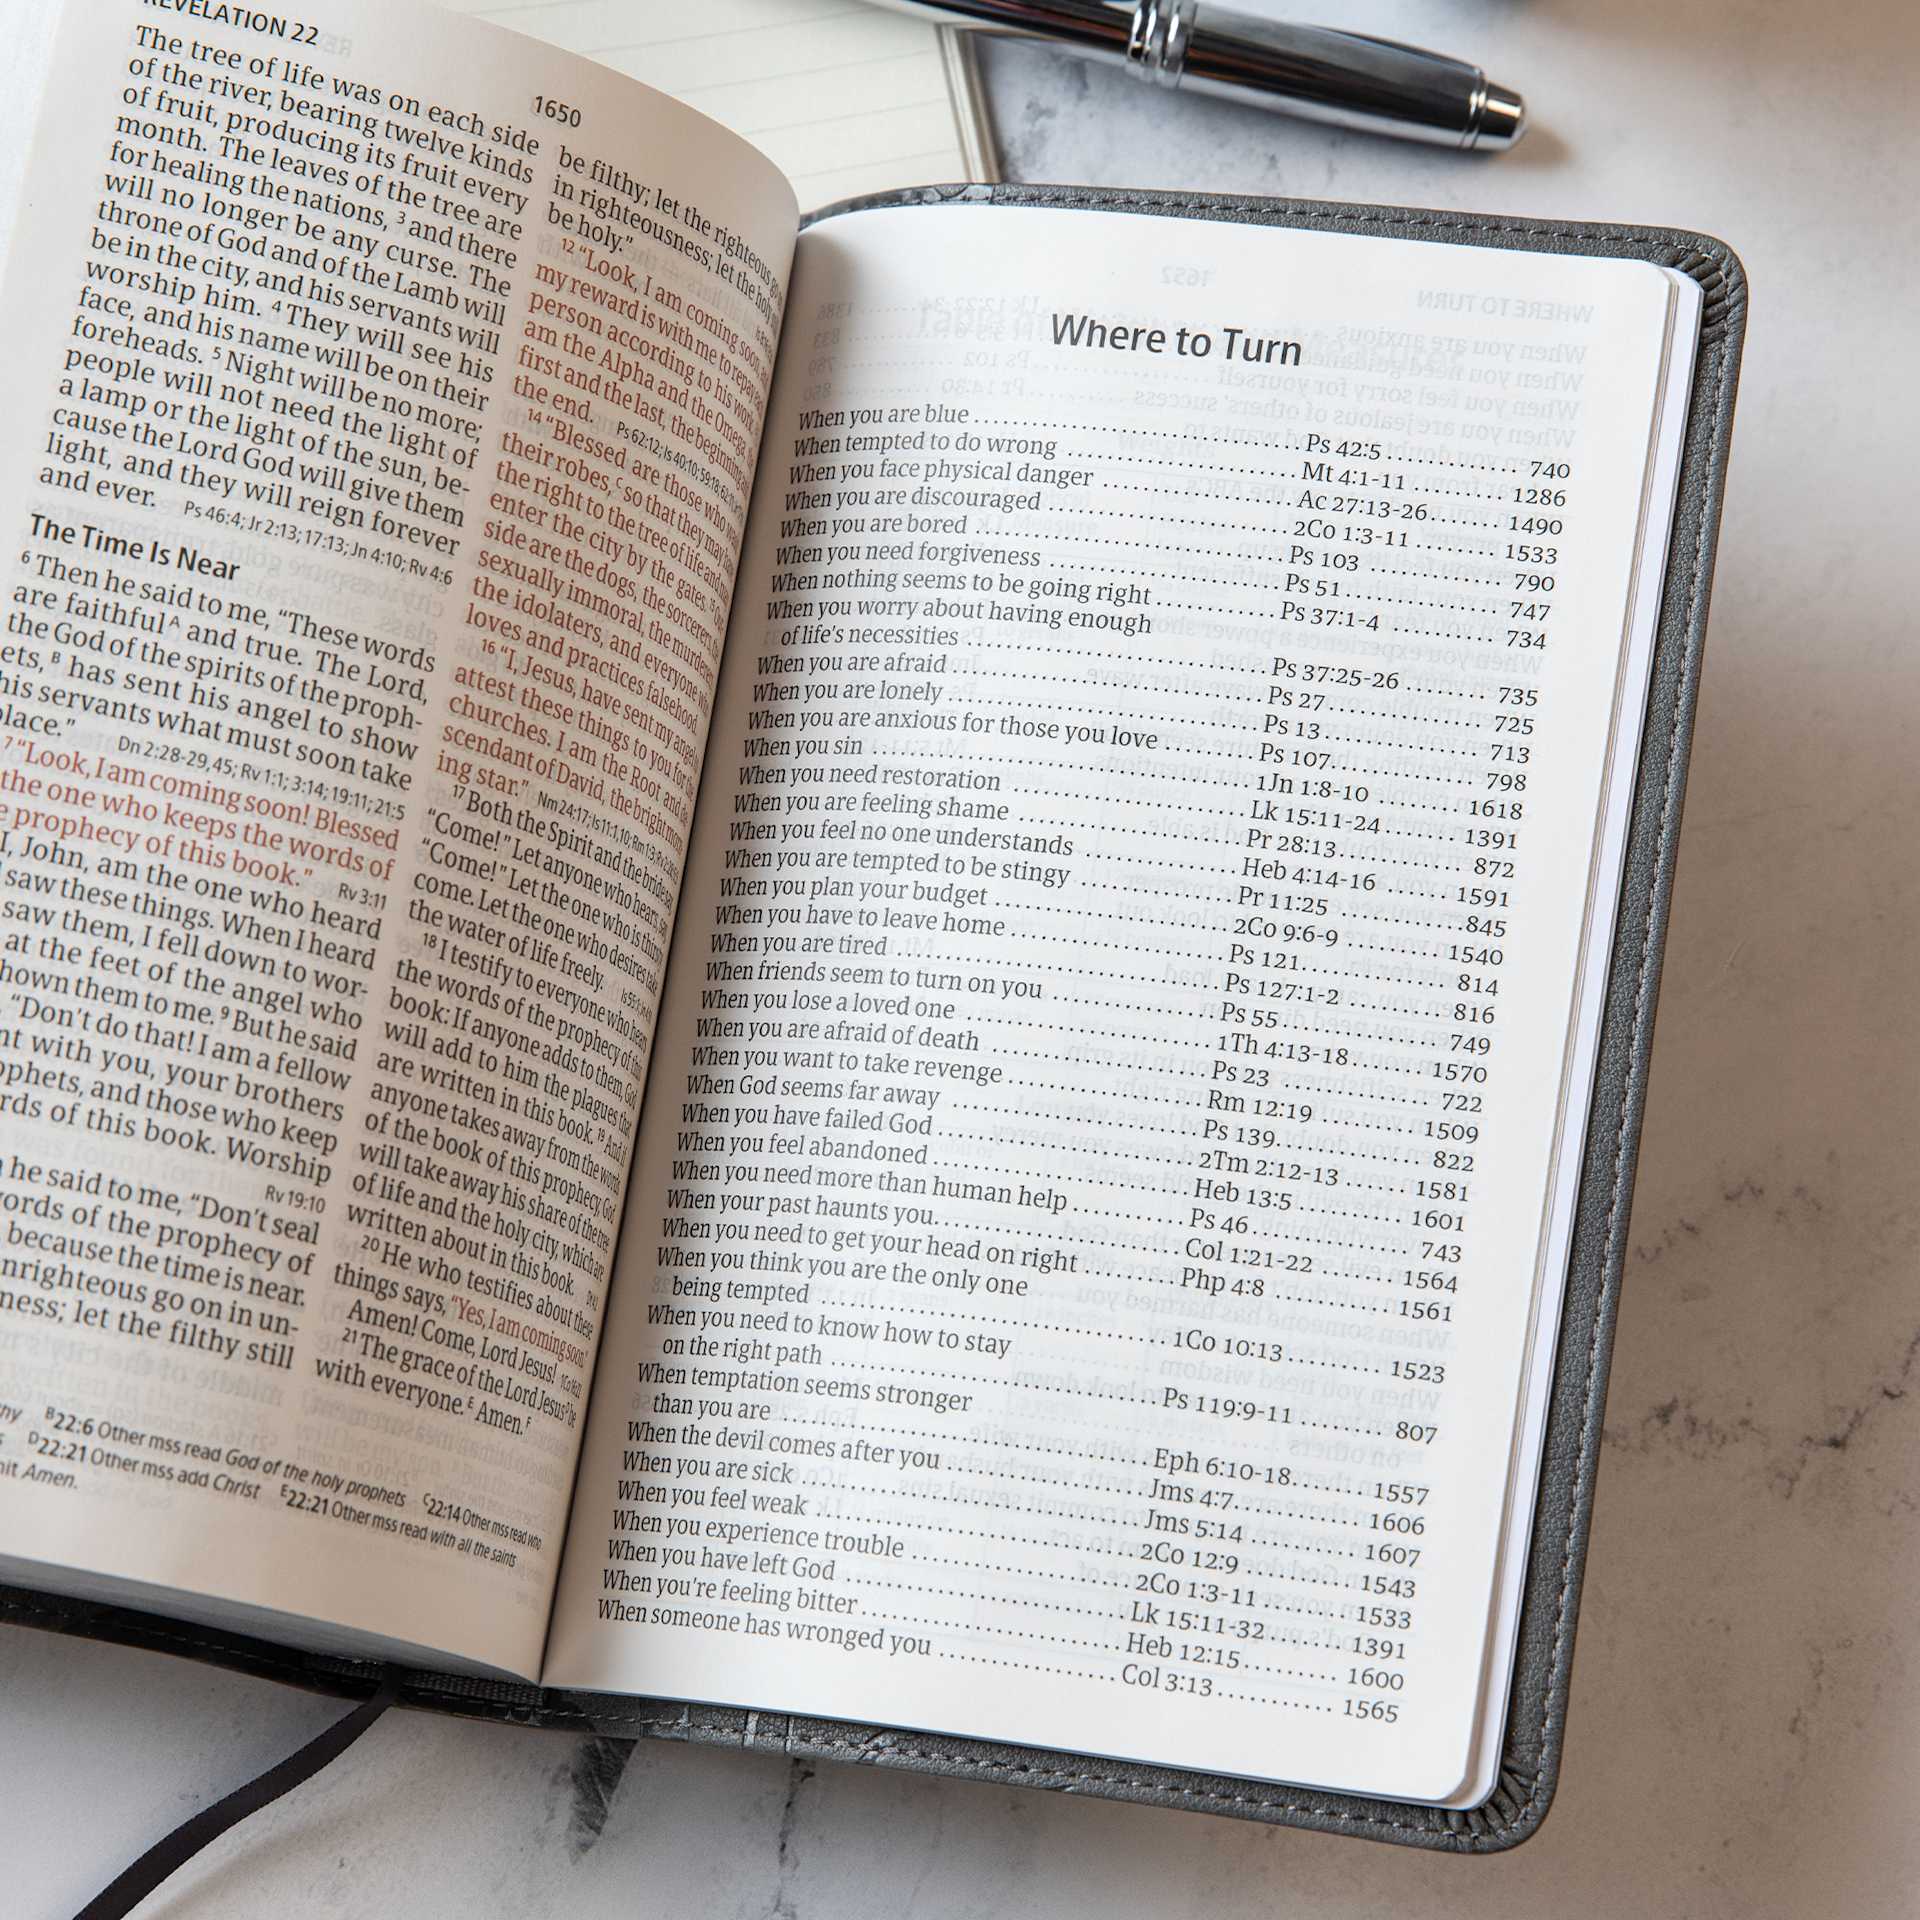 REVELATION 22
1650
The tree of life was on each side
of the river, bearing twelve kinds
of fruit, producing its fruit every
month. The leaves of the tree are
for healing the nations, 3 and there
will no longer be any curse. The
throne of God and of the Lamb will
be in the city, and his servants will
worship him. 4 They will see his
face, and his name will be on their
foreheads. 5 Night will be no more;
people will not need the light of
a lamp or the light of the sun, be-
cause the Lord God will give them
light, and they will reign forever
and ever. Ps 46:4; Jr 2:13; 17:13; Jn 4:10; Rv 4:6
The Time Is Near
6 Then he said to me, “These words
are faithfulA and true. The Lord,
the God of the spirits of the proph-
ets,B has sent his angel to show
his servants what must soon take
place.” Dn 2:28-29,45; Rv 1:1; 3:14; 19:11; 21:5
7 “Look, I am coming soon! Blessed
the one who keeps the words of
prophecy of this book.” Rv 3:11
I, John, am the one who heard
saw these things. When I heard
saw them, I fell down to wor-
at the feet of the angel who
them to me. 9 But he said
“Don’t do that! I am a fellow
with you, your brothers
and those who keep
of this book. Worship
Rv 19:10
he said to me, “Don’t seal
words of the prophecy of
because the time is near.
go on in un-
let the filthy still
be filthy; let the righteous go
in righteousness; let the holy
be holy.”
12 “Look, I am coming soon, and
my reward is with me to repay each
person according to his work. I
am the Alpha and the Omega, the
first and the last, the beginning and
the end. Ps 62:12; Is 40:10; 59:18; 62:11
14 “Blessed are those who wash
their robes,C so that they may have
the right to the tree of life and may
enter the city by the gates. 15 Out-
side are the dogs, the sorcerers, the
sexually immoral, the murderers,
the idolaters, and everyone who
loves and practices falsehood.
16 “I, Jesus, have sent my angel to
attest these things to you for the
churches. I am the Root and de-
scendant of David, the bright morn-
ing star.” Nm 24:17; Is 11:1,10; Rm 1:3;
17 Both the Spirit and the bride say,
“Come!” Let anyone who hears, say,
“Come!” Let the one who is thirsty
come. Let the one who desires take
the water of life freely.
18 I testify to everyone who hears
the words of the prophecy of this
book: If anyone adds to them, God
will add to him the plagues that
are written in this book. 19 And if
anyone takes away from the words
of the book of this prophecy, God
will take away his share of the tree
of life and the holy city, which are
written about in this book.
20 He who testifies about these
things says, “Yes, I am coming soon.”
Amen! Come, Lord Jesus!
21 The grace of the Lord JesusD be
with everyone.E Amen.F
B22:6 Other mss read God of the holy prophets C22:14 Other mss read who
D22:21 Other mss add Christ E22:21 Other mss read with all the saints
Amen.
Where to Turn
When you are blue ........ Ps 42:5 ........ 740
When tempted to do wrong ........ Mt 4:1-11 ........ 1286
When you face physical danger ........ Ac 27:13-26 ........ 1490
When you are discouraged ........ 2Co 1:3-11 ........ 1533
When you are bored ........ Ps 103 ........ 790
When you need forgiveness ........ Ps 51 ........ 747
When nothing seems to be going right ........ Ps 37:1-4 ........ 734
When you worry about having enough
of life’s necessities ........ Ps 37:25-26 ........ 735
When you are afraid ........ Ps 27 ........ 725
When you are lonely ........ Ps 13 ........ 713
When you are anxious for those you love ........ Ps 107 ........ 798
When you sin ........ 1Jn 1:8-10 ........ 1618
When you need restoration ........ Lk 15:11-24 ........ 1391
When you are feeling shame ........ Pr 28:13 ........ 872
When you feel no one understands ........ Heb 4:14-16 ........ 1591
When you are tempted to be stingy ........ Pr 11:25 ........ 845
When you plan your budget ........ 2Co 9:6-9 ........ 1540
When you have to leave home ........ Ps 121 ........ 814
When you are tired ........ Ps 127:1-2 ........ 816
When friends seem to turn on you ........ Ps 55 ........ 749
When you lose a loved one ........ 1Th 4:13-18 ........ 1570
When you are afraid of death ........ Ps 23 ........ 722
When you want to take revenge ........ Rm 12:19 ........ 1509
When God seems far away ........ Ps 139 ........ 822
When you have failed God ........ 2Tm 2:12-13 ........ 1581
When you feel abandoned ........ Heb 13:5 ........ 1601
When you need more than human help ........ Ps 46 ........ 743
When your past haunts you ........ Col 1:21-22 ........ 1564
When you need to get your head on right ........ Php 4:8 ........ 1561
When you think you are the only one
being tempted ........ 1Co 10:13 ........ 1523
When you need to know how to stay
on the right path ........ Ps 119:9-11 ........ 807
When temptation seems stronger
than you are ........ Eph 6:10-18 ........ 1557
When the devil comes after you ........ Jms 4:7 ........ 1606
When you are sick ........ Jms 5:14 ........ 1607
When you feel weak ........ 2Co 12:9 ........ 1543
When you experience trouble ........ 2Co 1:3-11 ........ 1533
When you have left God ........ Lk 15:11-32 ........ 1391
When you’re feeling bitter ........ Heb 12:15 ........ 1600
When someone has wronged you ........ Col 3:13 ........ 1565